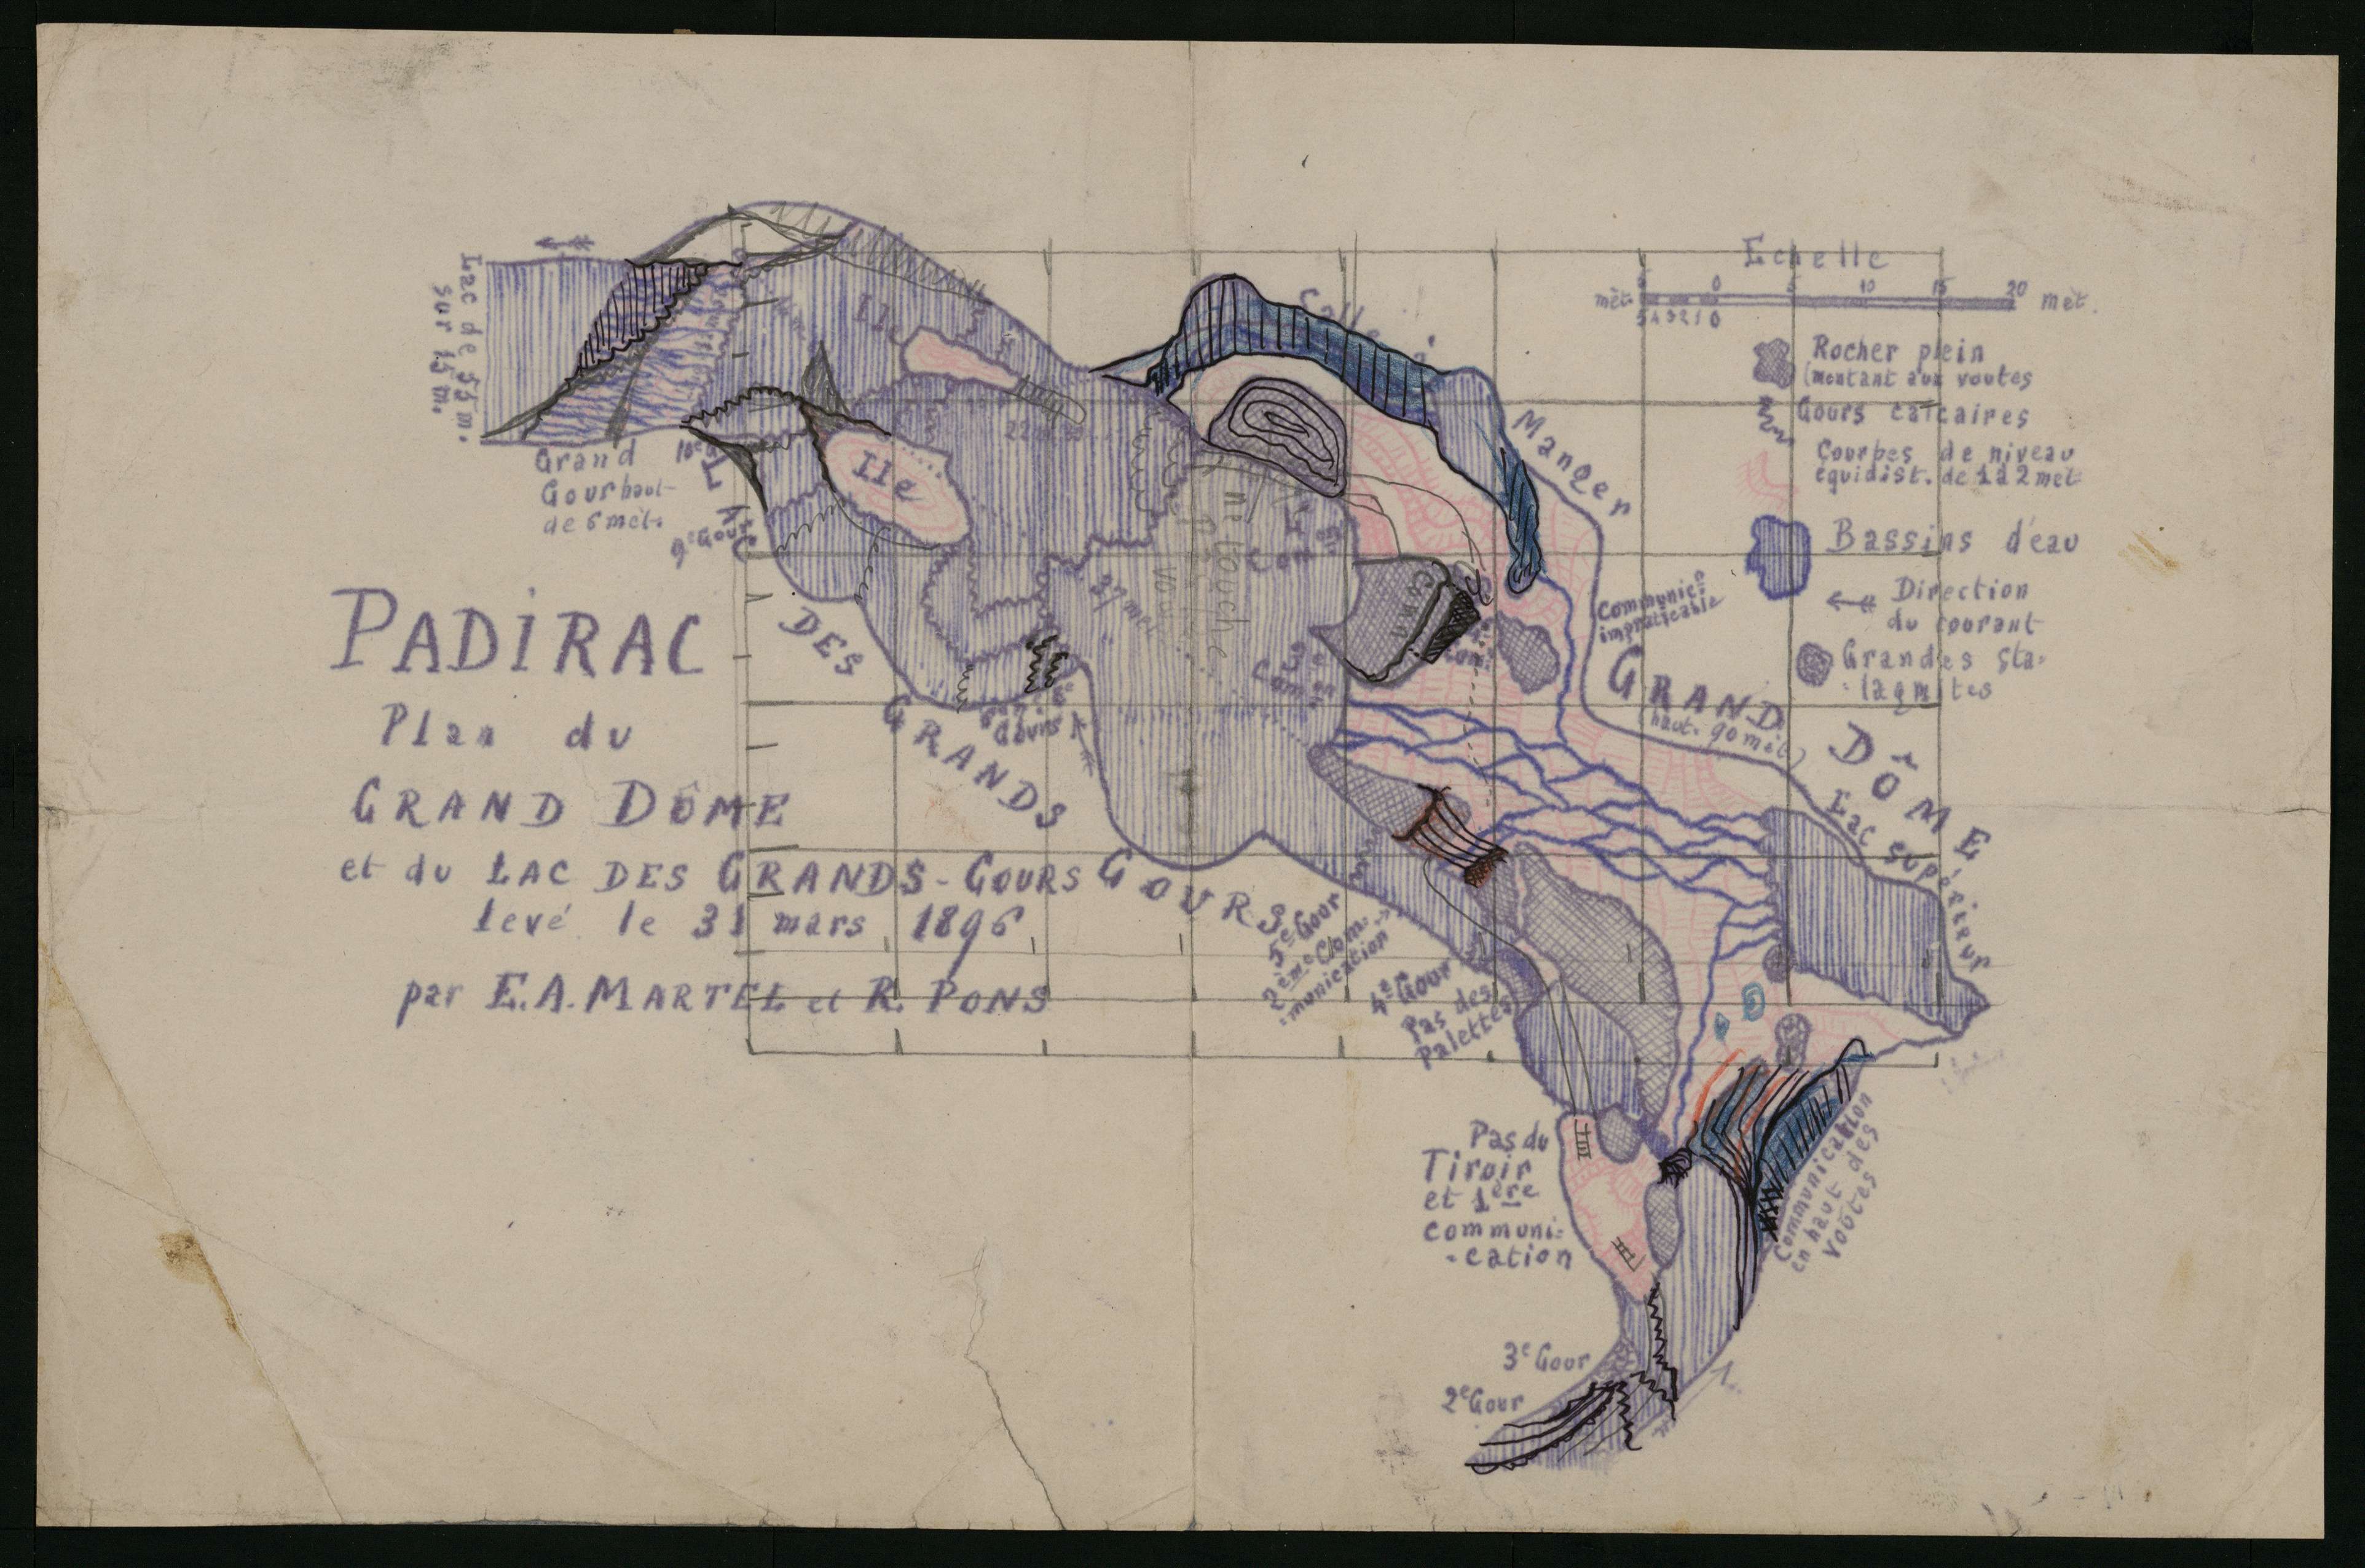 PADIRAC
Plan du
GRAND DÔME
et du LAC DES GRANDS-GOURS
levé le 31 mars 1896
par E.A. MARTEL et R. PONS
Echelle
5 0 5 10 15 20
mèt. mèt.
5 4 3 2 1 0
Rocher plein
(montant aux voutes
Gours calcaires
Courbes de niveau
équidist. de 1 à 2 mèt
Bassins d'eau
Direction
du courant
Grandes sta-
-lagmites
Lac de 55 m.
sur 15 m.
Grand
Gour haut-
de 6 mèt.
9e Gour
Ile
Ile
LAC
DES
GRANDS
GOURS
Gours
37 mèt.
3e
Com.on
Salle à
Manger
Communic.n
impraticable
GRAND
DÔME
haut. 90 mèt.
Lac supérieur
5e Gour
2ème Com-
-munication
4e Gour
Pas des
Palettes
Pas du
Tiroir
et 1ère
communi-
-cation
3e Gour
2e Gour
Communication
en haut des
voûtes